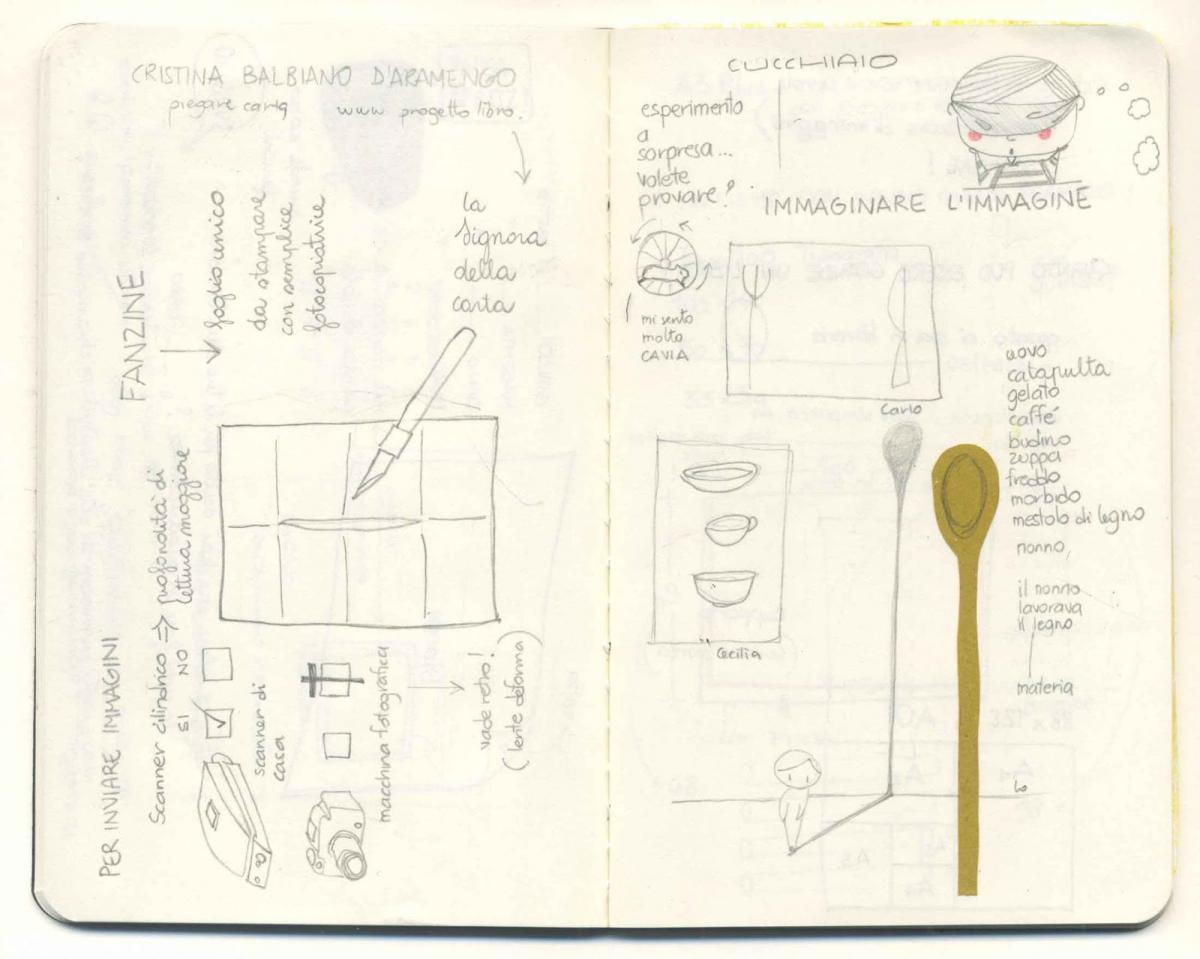 CRISTINA BALBIANO D'ARAMENGO
piegare carta www progetto libro.
la
signora
della
carta
FANZINE
foglio unico
da stampare
con semplice
fotocopiatrice
PER INVIARE IMMAGINI
Scanner cilindrico ⇒ profondità di
lettura maggiore
SI NO
scanner di
casa
macchina fotografica
vade retro!
(lente deforma)
CUCCHIAIO
esperimento
a
sorpresa...
volete
provare?
IMMAGINARE L'IMMAGINE
mi sento
molto
CAVIA
Carlo
Cecilia
uovo
catapulta
gelato
caffé
budino
zuppa
freddo
morbido
mestolo di legno
nonno,
il nonno
lavorava
il legno
materia
Io